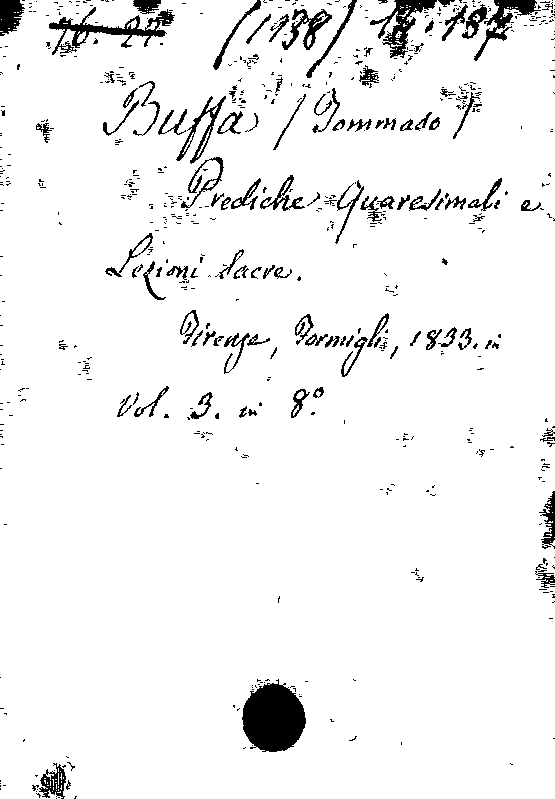 76. 27. (1138) 14.187
Buffa (Tommaso)
Prediche Quaresimali e
Lezioni Sacre.
Firenze, Formigli, 1833. in
Vol. 3. in 8°